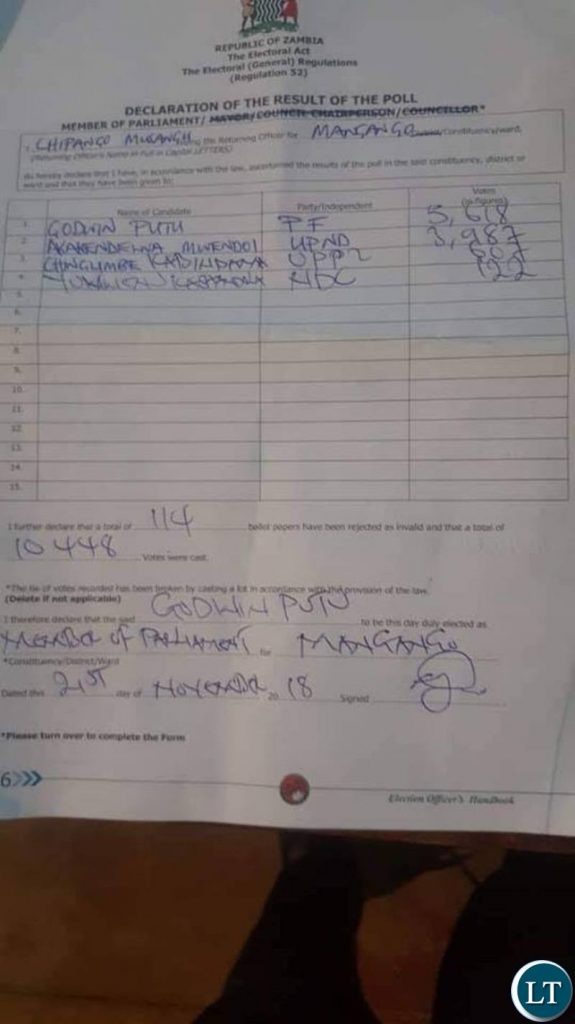 REPUBLIC OF ZAMBIA
The Electoral Act
The Electoral (General) Regulations
(Regulation 52)
DECLARATION OF THE RESULT OF THE POLL
MEMBER OF PARLIAMENT/ MAYOR/COUNCIL CHAIRPERSON/COUNCILLOR*
I, CHIPANGO being the Returning Officer for MANGANGO Constituency/ward,
(Returning Officer's Name in Full in Capital LETTERS)
do hereby declare that I have, in accordance with the law, ascertained the results of the poll in the said constituency, district or
ward and that they have been given to:
Name of Candidate Party/Independent Votes (in figures)
1. GODWIN PUTU PF 5,618
2. AKAKENDELWA MWENDOI UPND 3,987
3. CHINGUMBE UPPZ 607
4. NDC 122
5.
6.
7.
8.
9.
10.
11.
12.
13.
14.
15.
I further declare that a total of 114 ballot papers have been rejected as invalid and that a total of
10 448 Votes were cast.
*The tie of votes recorded has been broken by casting a lot in accordance with the provision of the law.
(Delete if not applicable)
I therefore declare that the said GODWIN PUTU to be this day duly elected as
MEMBER OF PARLIAMENT for MANGANGO
*Constituency/District/Ward
Dated this 21ST day of NOVEMBER 20 18 Signed
*Please turn over to complete the Form
6
Election Officer's Handbook
LT